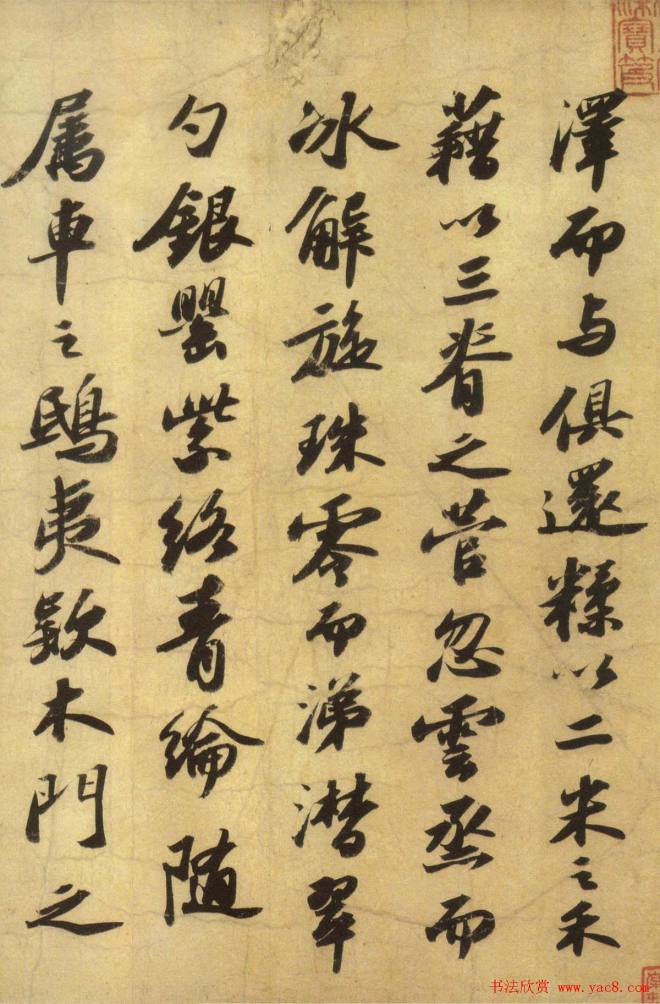 澤而与俱還糅以二米之禾
藉以三脊之菅忽雲烝而
冰解旋珠零而涕潸翠
勺銀罌紫絡青綸随
属車之鴟夷款木門之
书法欣赏 www.yac8.com